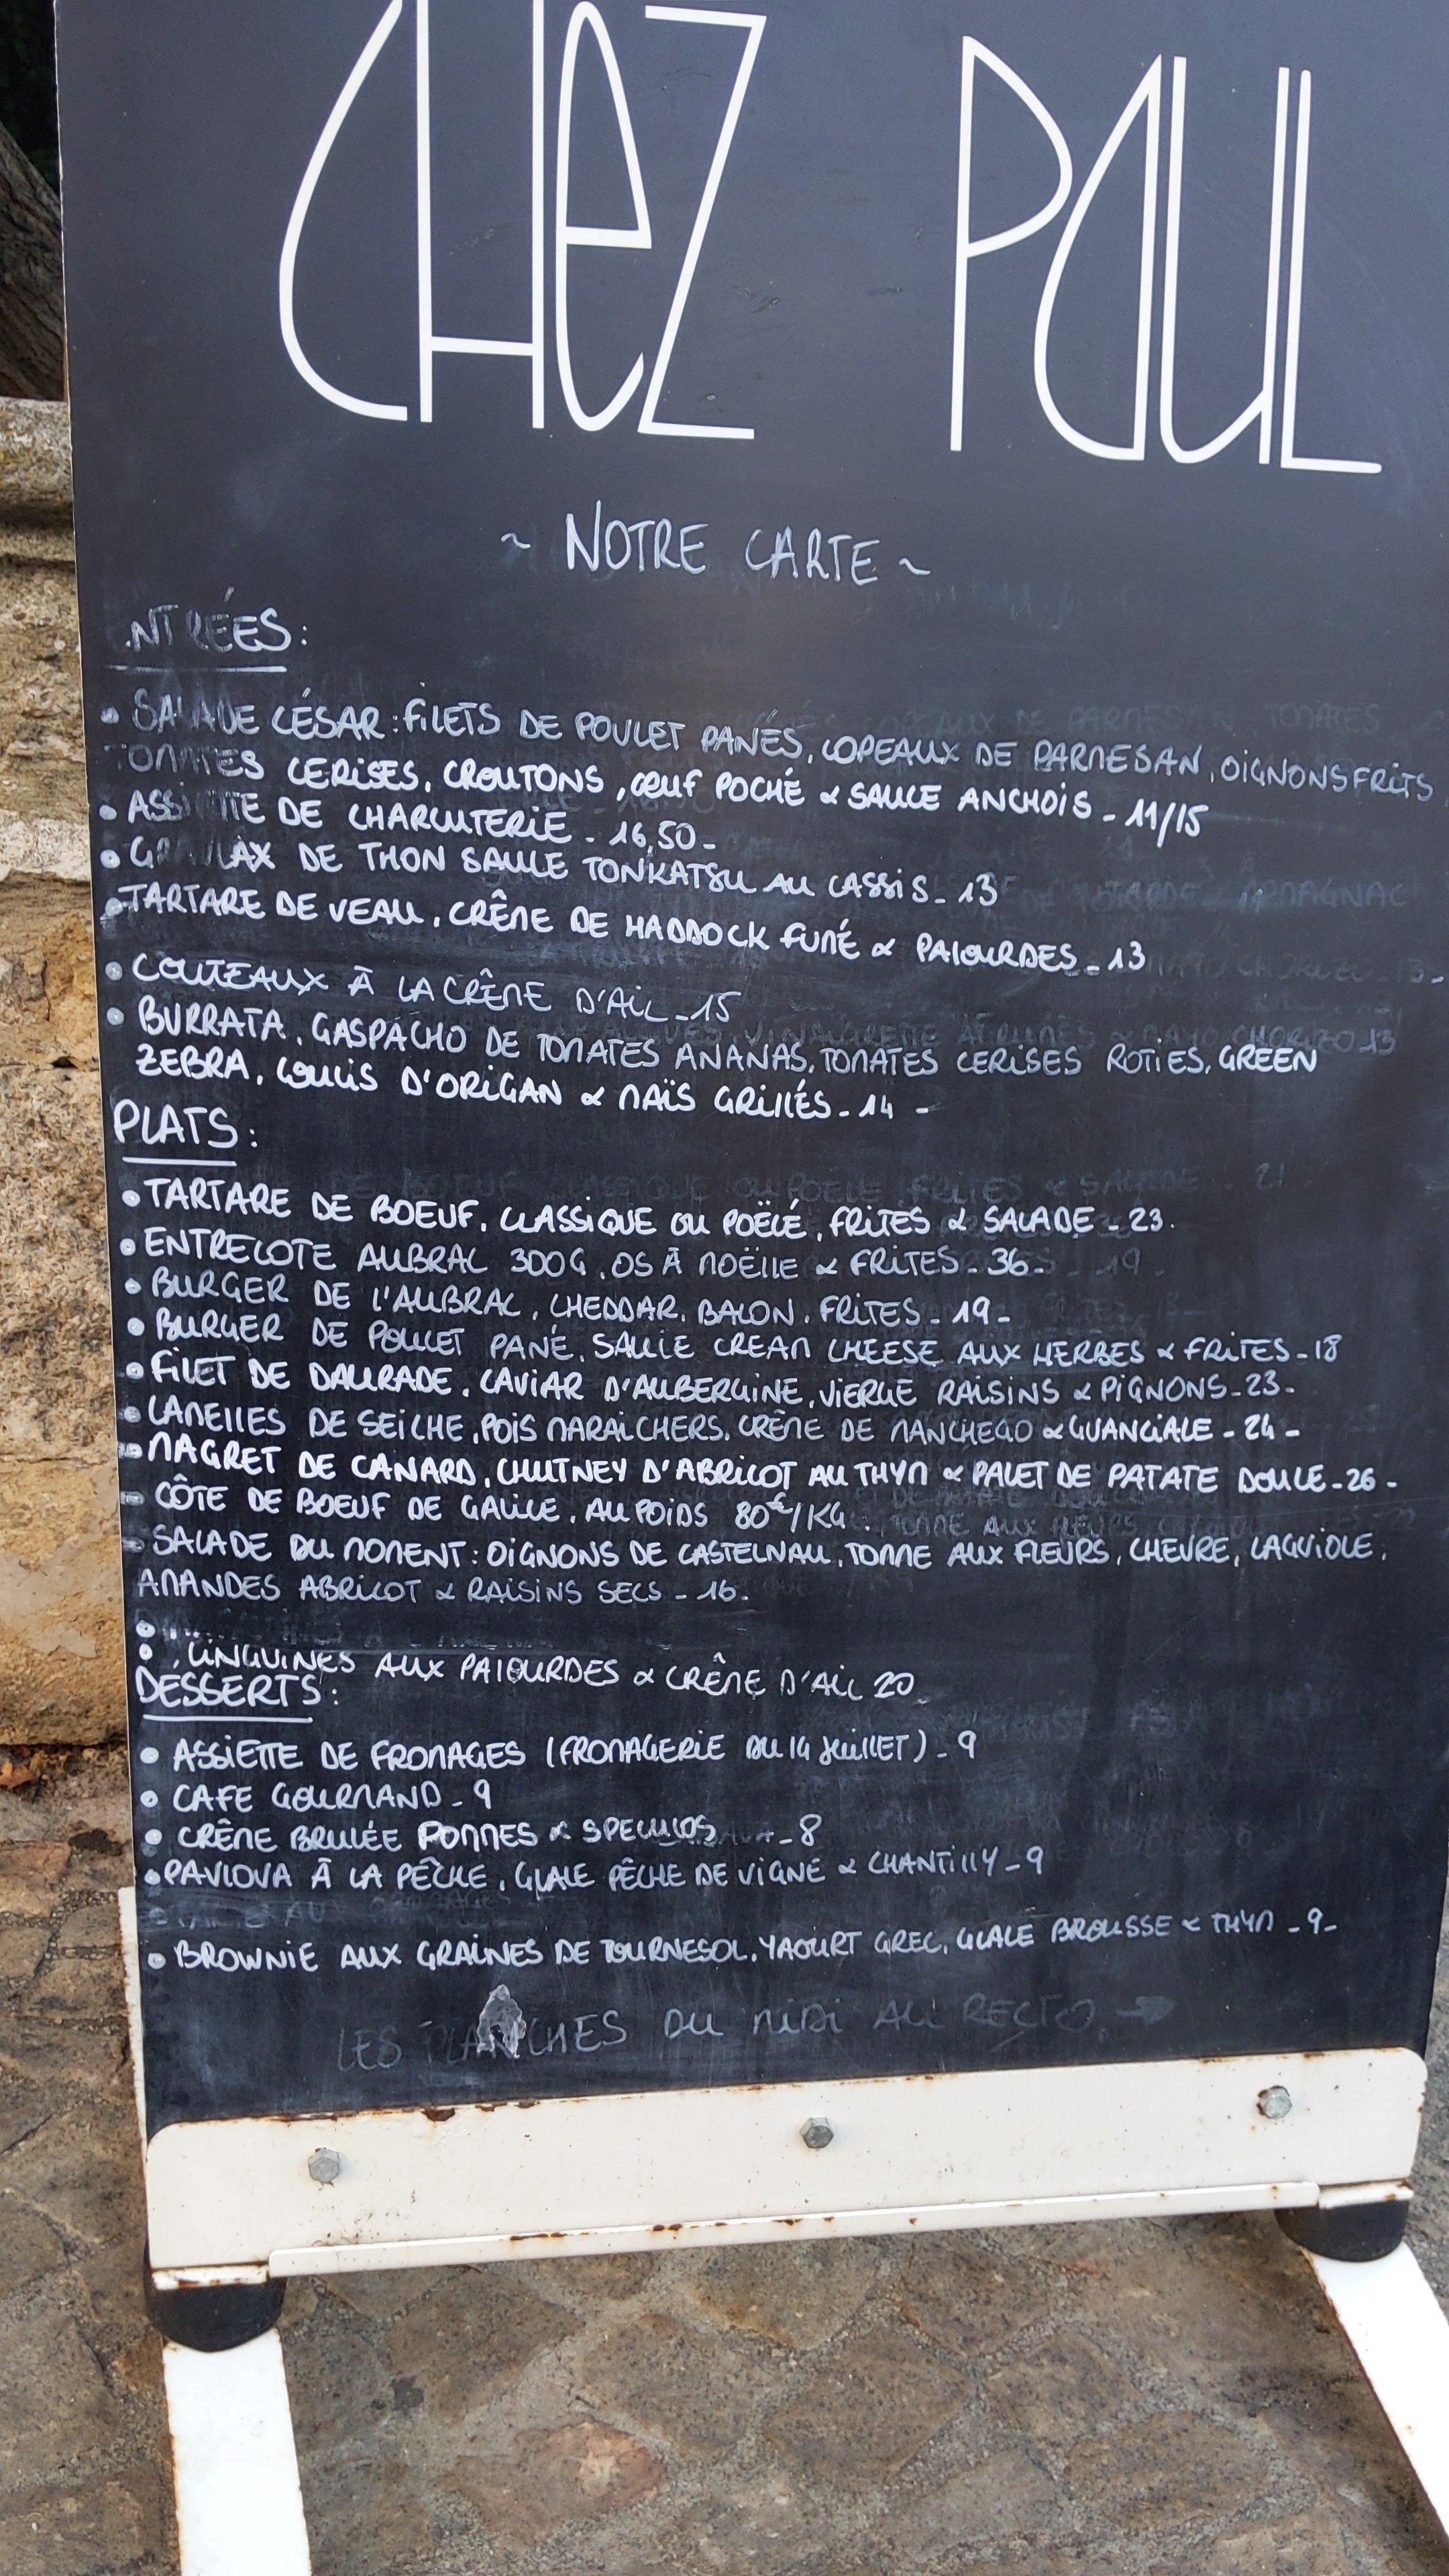 CHEZ PAUL
~ NOTRE CARTE ~
ENTRÉES:
• SALADE CÉSAR: FILETS DE POULET PANÉS, COPEAUX DE PARMESAN, OIGNONS FRITS
TOMATES CERISES, CROUTONS, ŒUF POCHÉ & SAUCE ANCHOIS - 11/15
• ASSIETTE DE CHARCUTERIE - 16,50 -
• GRAVLAX DE THON SAUCE TONKATSU AU CASSIS - 13
• TARTARE DE VEAU, CRÊME DE HADDOCK FUMÉ & PALOURDES - 13
• COUTEAUX À LA CRÊME D'AIL - 15
• BURRATA, GASPACHO DE TOMATES ANANAS, TOMATES CERISES ROTIES, GREEN
ZEBRA, COULIS D'ORIGAN & MAÏS GRILLÉS - 14 -
PLATS:
• TARTARE DE BOEUF, CLASSIQUE OU POËLÉ, FRITES & SALADE - 23.
• ENTRECOTE AUBRAC 300G, OS À MOËLLE & FRITES - 36 -
• BURGER DE L'AUBRAC, CHEDDAR, BACON, FRITES - 19 -
• BURGER DE POULET PANÉ, SAUCE CREAM CHEESE AUX HERBES & FRITES - 18
• FILET DE DAURADE, CAVIAR D'AUBERGINE, VIERGE RAISINS & PIGNONS - 23 -
• LAMELLES DE SEICHE, POIS MARAICHERS, CRÊME DE MANCHEGO & GUANCIALE - 24 -
• MAGRET DE CANARD, CHUTNEY D'ABRICOT AU THYM & PALET DE PATATE DOUCE - 26 -
• CÔTE DE BOEUF DE GALICE, AU POIDS 80€/KG.
• SALADE DU MOMENT: OIGNONS DE CASTELNAU, TOMME AUX FLEURS, CHEVRE, LAGUIOLE,
AMANDES ABRICOT & RAISINS SECS - 16 -
• LINGUINES AUX PALOURDES & CRÊME D'AIL 20
DESSERTS:
• ASSIETTE DE FROMAGES (FROMAGERIE DU 14 JUILLET) - 9
• CAFE GOURMAND - 9
• CRÊME BRULÉE POMMES & SPECULOS - 8
• PAVLOVA À LA PÊCHE, GLACE PÊCHE DE VIGNE & CHANTILLY - 9
• BROWNIE AUX GRAINES DE TOURNESOL, YAOURT GREC, GLACE BROUSSE & THYM - 9 -
LES PLANCHES DU MIDI AU RECTO →